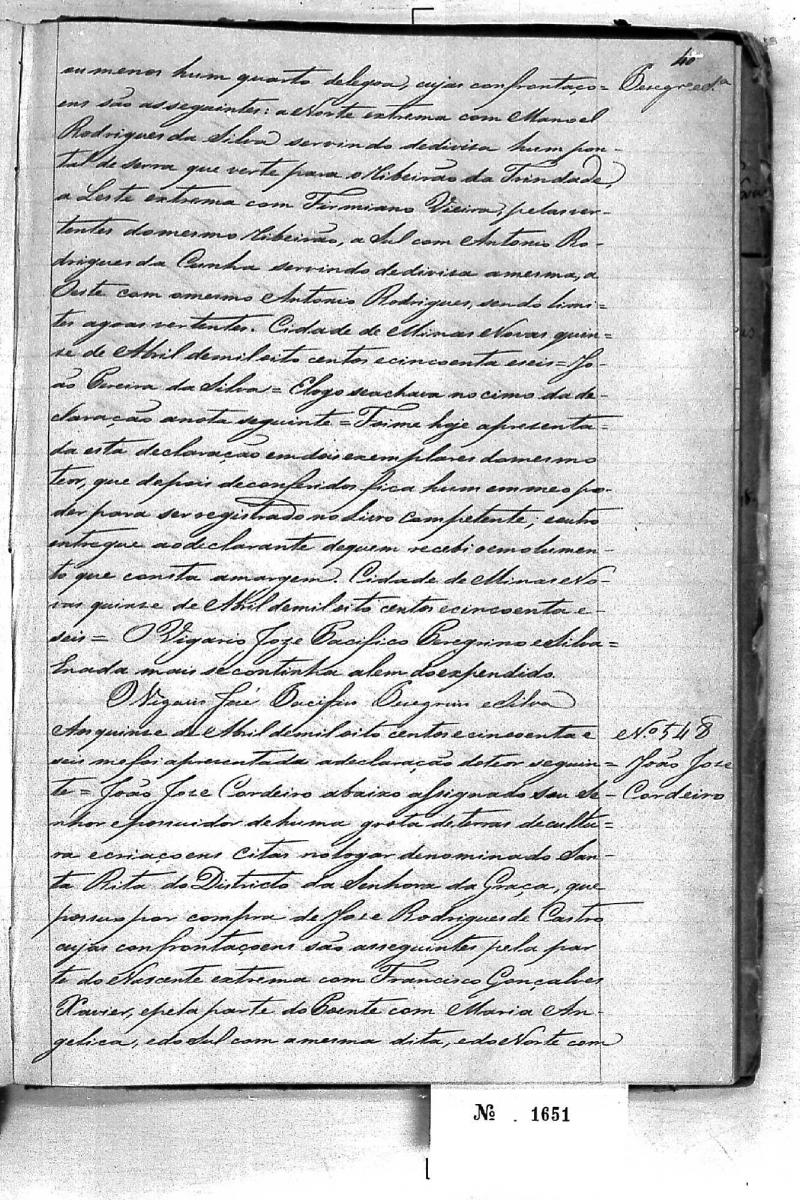 40
ou menos hum quarto delegoa, cujas confrontaço=
ens são as seguintes: a Norte extrema com Manoel
Rodrigues da Silva servindo dedivisa hum pon-
tal de serra que verte para o Ribeirão da Trindade,
a Leste extrema com Firmiano Vieira, pelas ver-
tentes domesmo Ribeirão, a Sul com Antonio Ro-
drigues da Cunha servindo dedivisa amesma, a
Oeste com omesmo Antonio Rodrigues, sendo limi-
tes agoas vertentes. Cidade de Minas Novas quin-
se de Abril demil oito centos ecincoenta eseis= Jo-
ão Pereira da Silva= Elogo seachava no cimo da de-
claração anota seguinte= Foime hoje apresenta-
da esta declaração em dois exemplares domesmo
teor, que depois deconferidos fica hum em meo po-
der para ser registrado no Livro competente, eoutro
entregue ao declarante dequem recebi oemolumen-
to que consta amargem. Cidade de Minas No-
vas quinse de Abril demil oito centos ecincoenta e-
seis= O Vigario Joze Pacifico Peregrino eSilva=
Enada mais se continha alem do expendido.
O Vigario José Pacifico Peregrino eSilva
Aos quinse de Abril demil oito centos ecincoenta e
seis me foi apresentada a declaração doteor seguin=
te= João Joze Cordeiro abaixo assignado sou Se-
nhor e possuidor de huma grota de terras decultu=
ra ecriaçoens citas no logar denominado San-
ta Rita do Districto da Senhora da Graça, que
possuo por compra de Joze Rodrigues de Castro
cujas confrontaçoens são as seguintes pela par
te do Nascente extrema com Francisco Gonçalves
Xavier, epela parte do Poente com Maria An-
gelica, edo Sul com amesma dita, edo Norte com
Nº 548
João Joze
Cordeiro
Nº . 1651